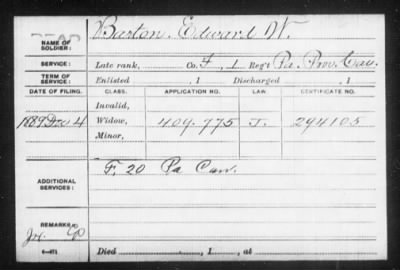 NAME OF SOLDIER: Barton, Edward W.
SERVICE: Late rank, Co. F, 1 Reg't Pa. Prov. Cav.
TERM OF SERVICE: Enlisted , 1 Discharged , 1
DATE OF FILING. CLASS. APPLICATION NO. LAW. CERTIFICATE NO.
Invalid,
1889 Dec 4 Widow, 409.775 J. 294105
Minor,
ADDITIONAL SERVICES: F, 20 Pa Cav.
REMARKS:
Died , 1 , at